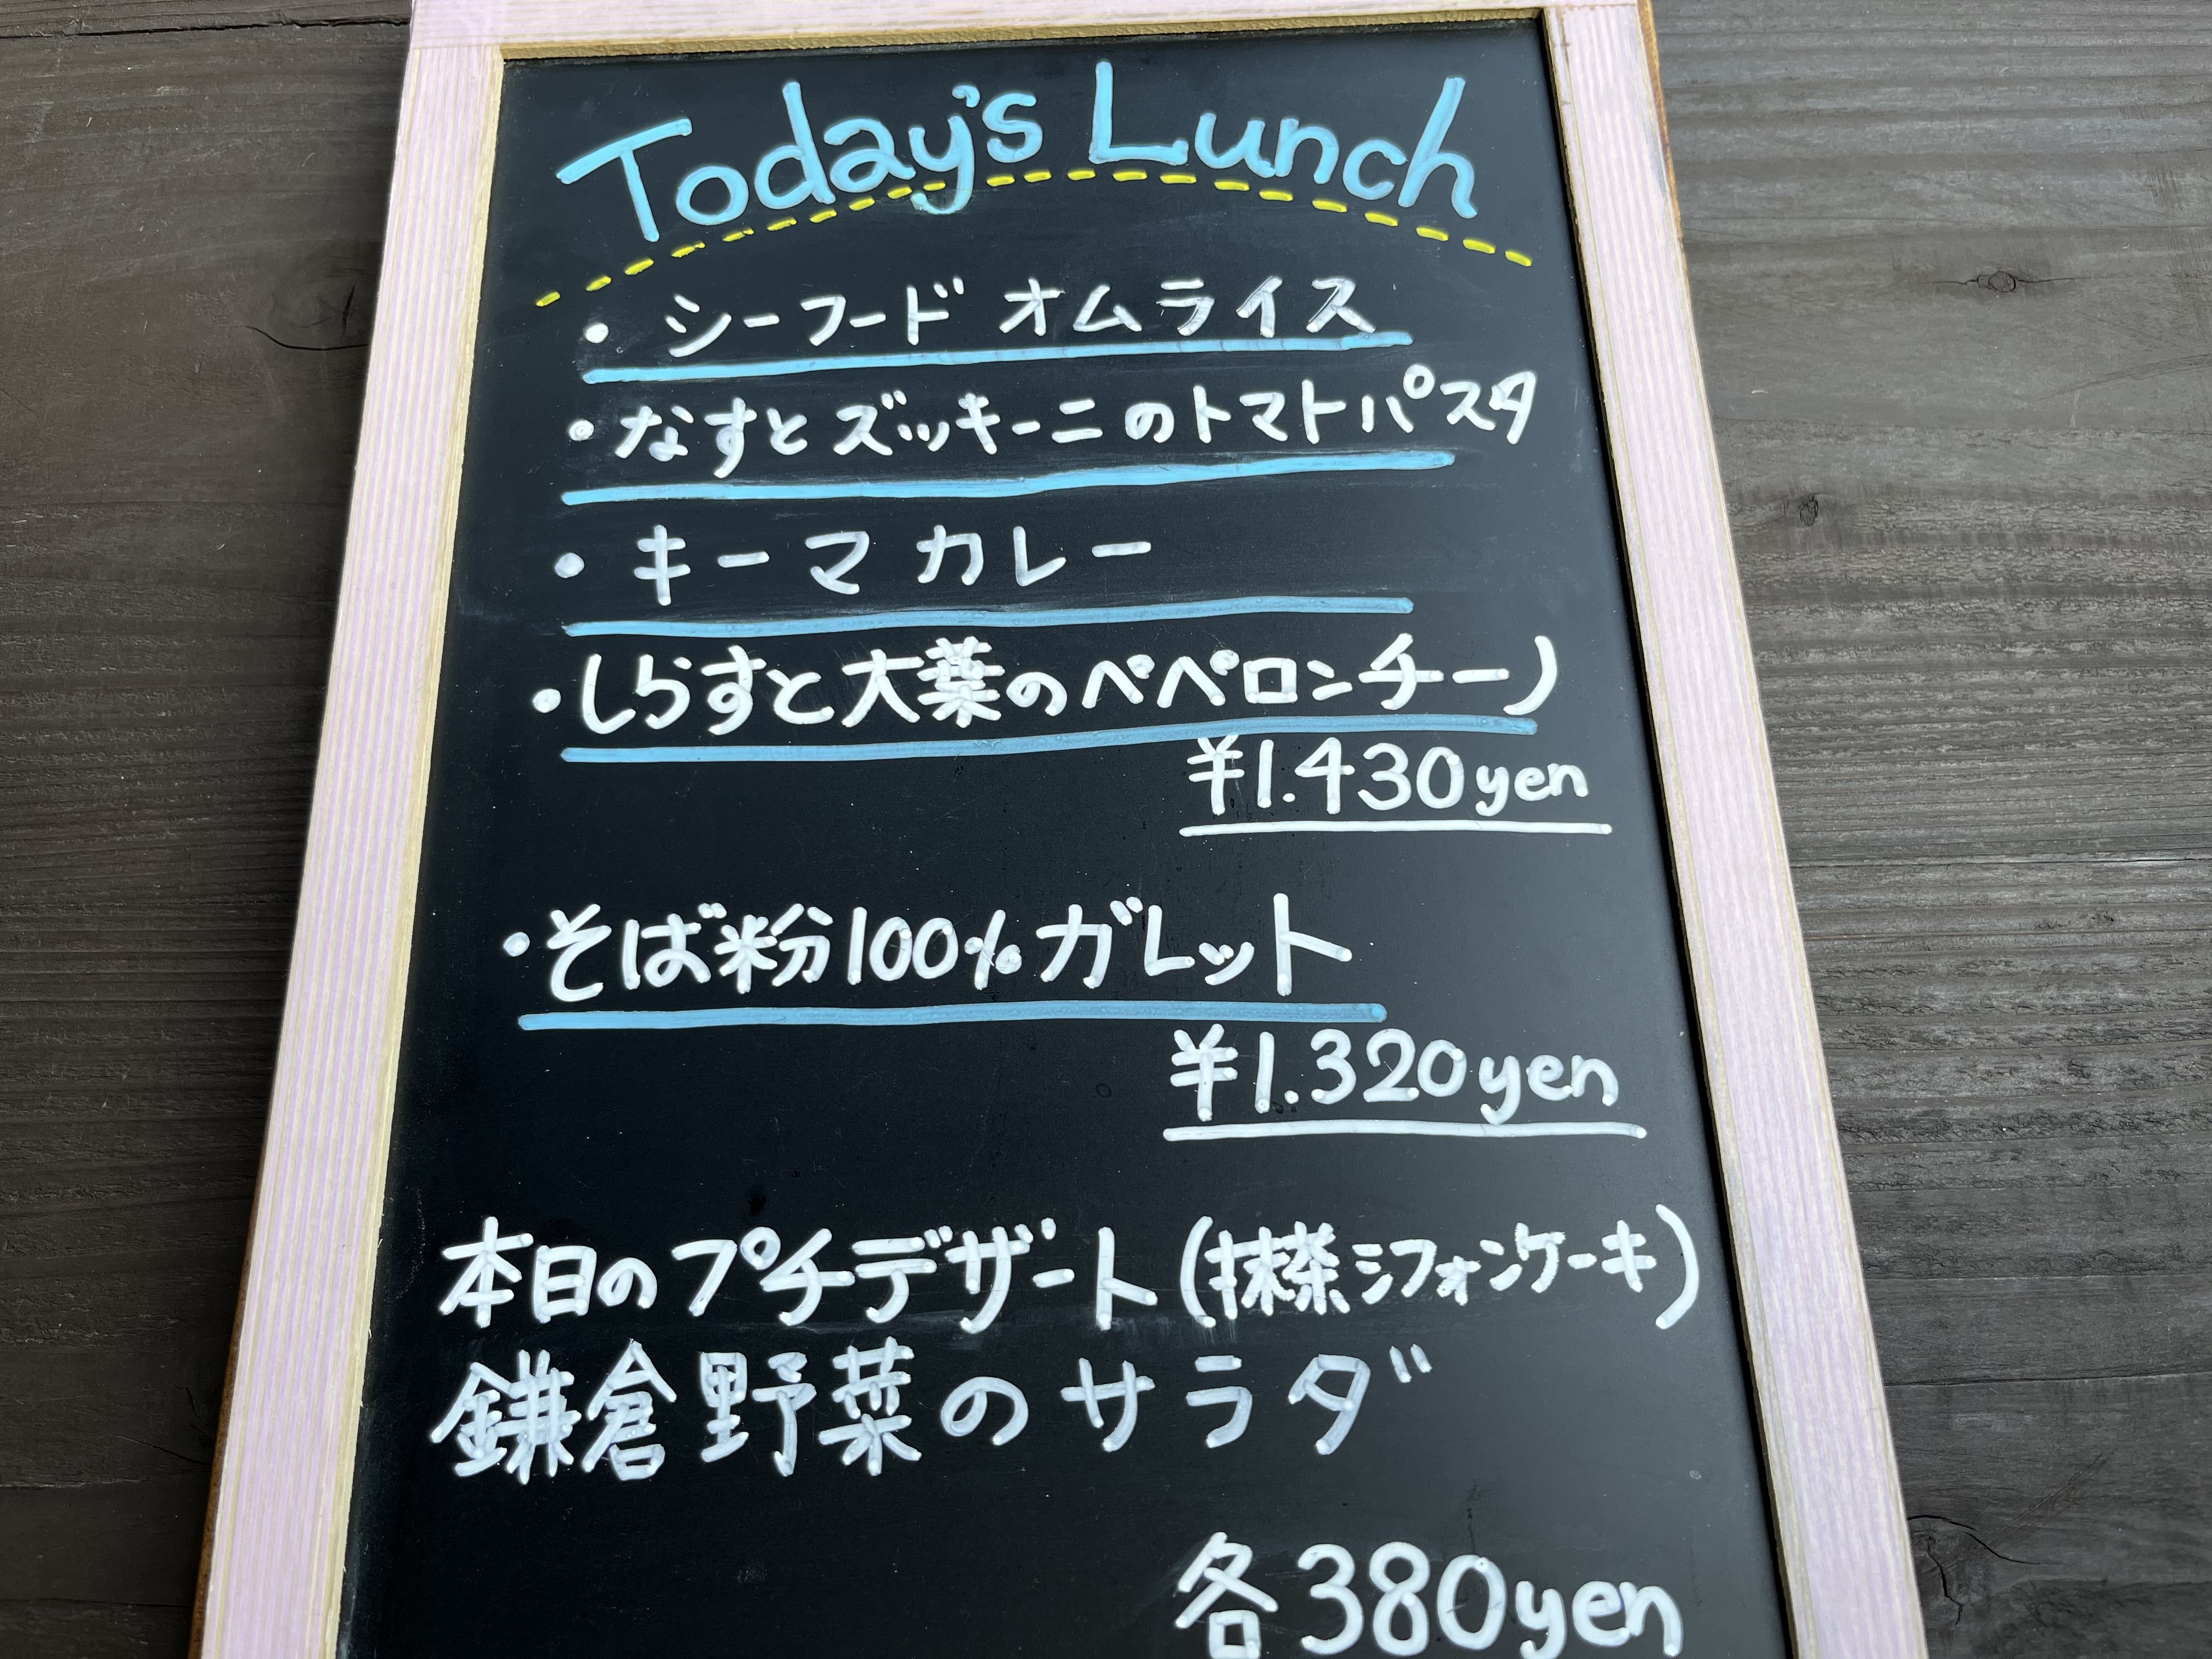 Today's Lunch
・シーフード オムライス
・なすとズッキーニのトマトパスタ
・キーマカレー
・しらすと大葉のペペロンチーノ
¥1.430yen
・そば粉100%ガレット
¥1.320yen
本日のプチデザート(抹茶シフォンケーキ)
鎌倉野菜のサラダ
各380yen